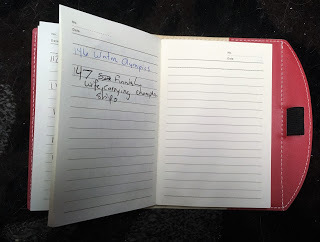 No.
Date.
46 Winter Olympics
47 Finnish
Wife carrying champion
ships
No.
Date.